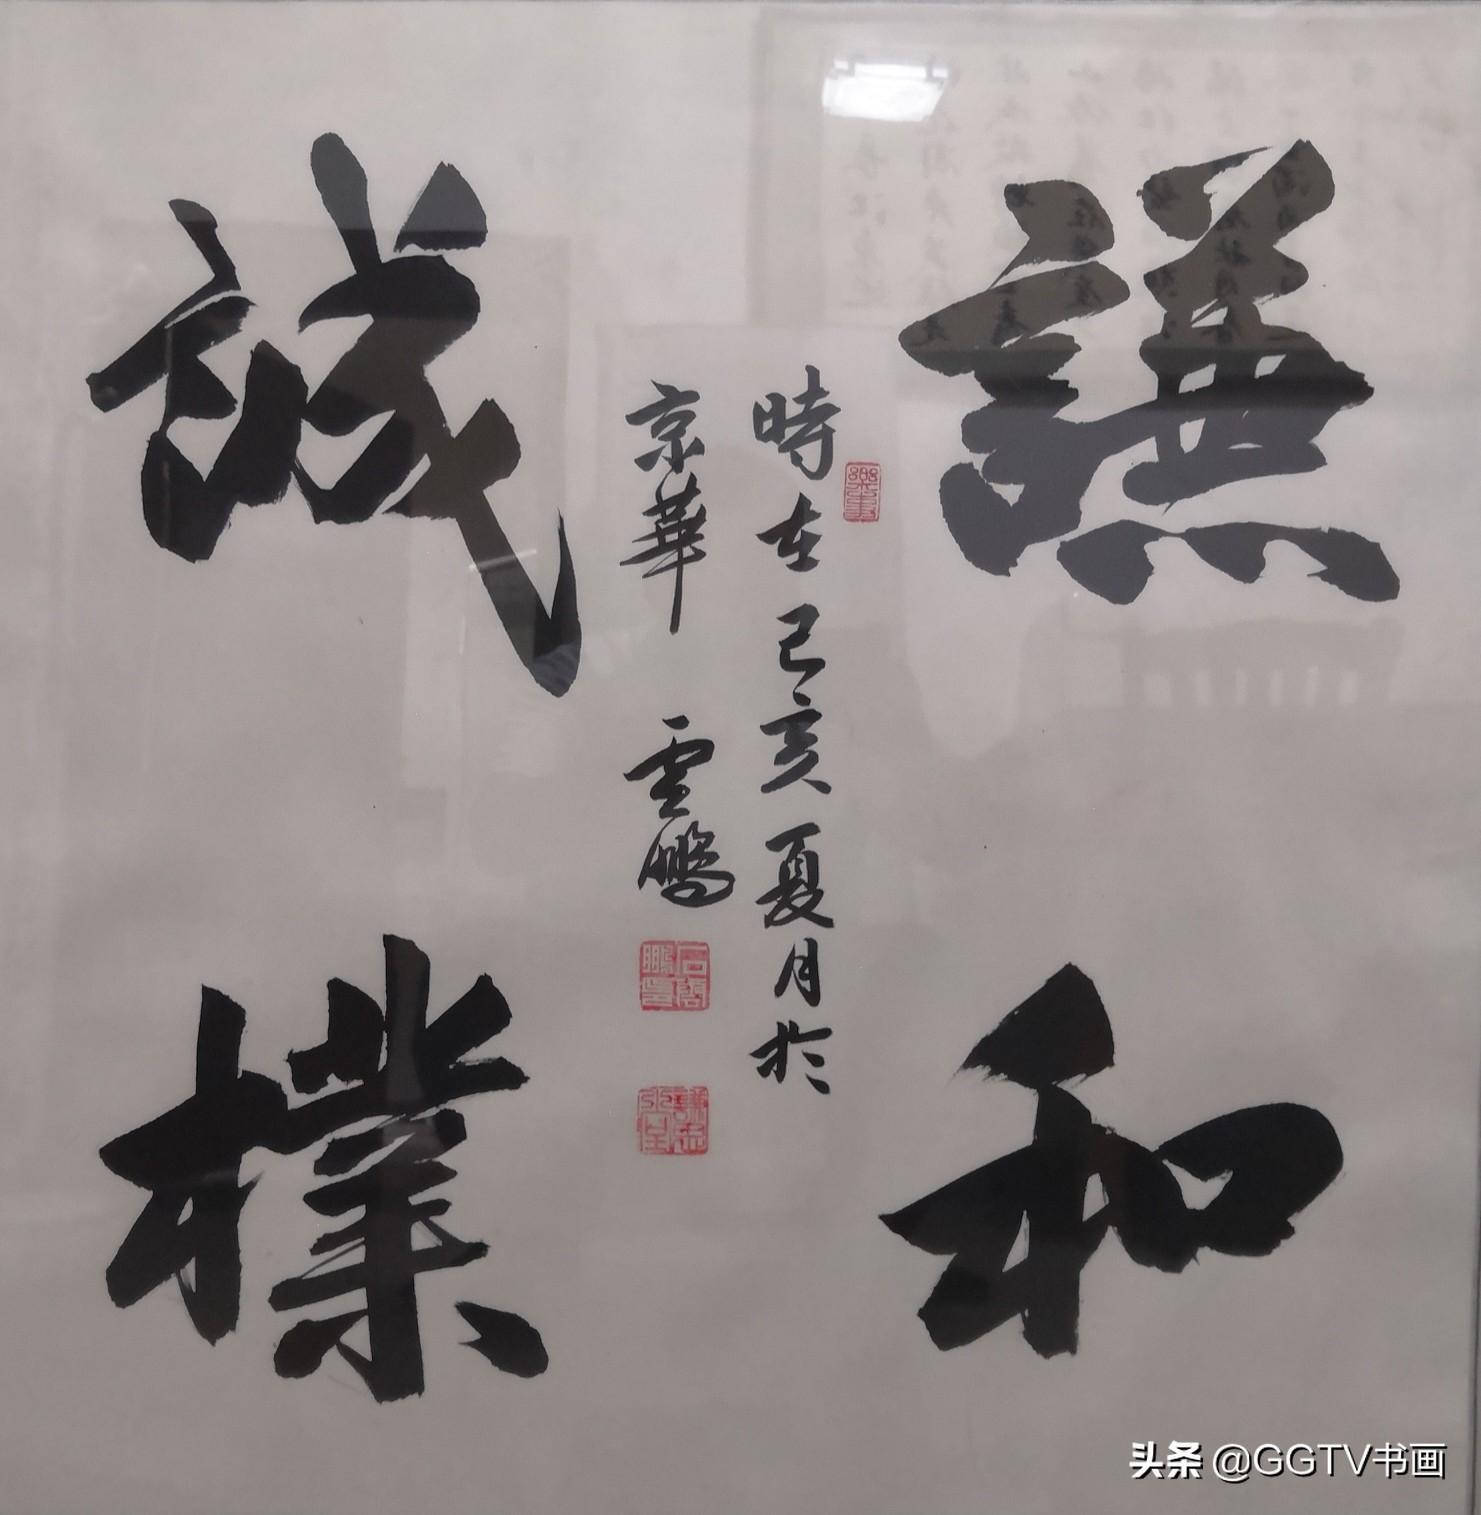 謙和
誠樸
時在己亥夏月於
京華 雲鵬
头条 @GGTV书画